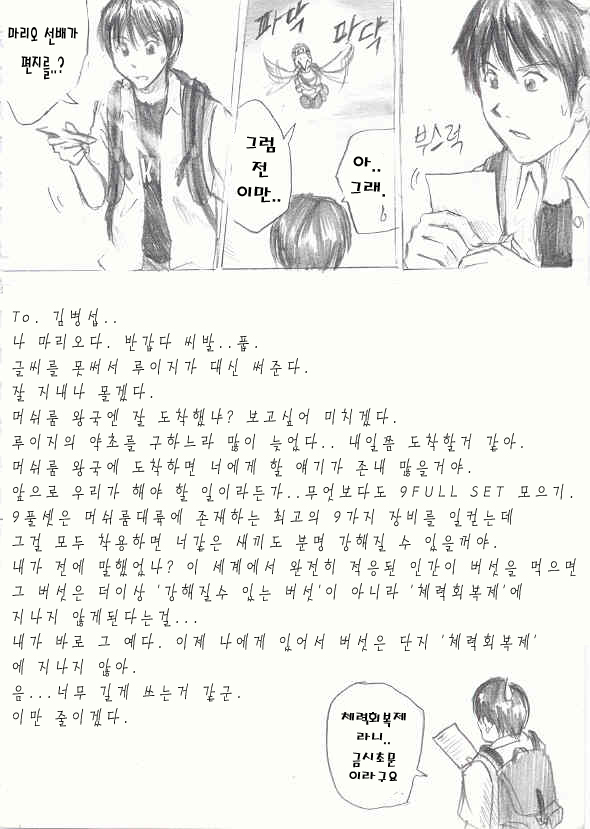 마리오 선배가
편지를..?
파닥
파닥
그럼
전
이만..
아..
그래.
부스럭
To. 김병섭..
나 마리오다. 반갑다 씨발..풉.
글씨를 못써서 루이지가 대신 써준다.
잘 지내나 몰겠다.
머쉬룸 왕국엔 잘 도착했냐? 보고싶어 미치겠다.
루이지의 약초를 구하느라 많이 늦었다.. 내일쯤 도착할거 같아.
머쉬룸 왕국에 도착하면 너에게 할 얘기가 존내 많을거야.
앞으로 우리가 해야 할 일이라든가..무엇보다도 9FULL SET 모으기.
9풀셋은 머쉬룸대륙에 존재하는 최고의 9가지 장비를 일컫는데
그걸 모두 착용하면 너같은 새끼도 분명 강해질 수 있을꺼야.
내가 전에 말했었나? 이 세계에서 완전히 적응된 인간이 버섯을 먹으면
그 버섯은 더이상 '강해질수 있는 버섯'이 아니라 '체력회복제'에
지나지 않게된다는걸...
내가 바로 그 예다. 이제 나에게 있어서 버섯은 단지 '체력회복제'
에 지나지 않아.
음...너무 길게 쓰는거 같군.
이만 줄이겠다.
체력회복제
라니..
금시초문
이라구요